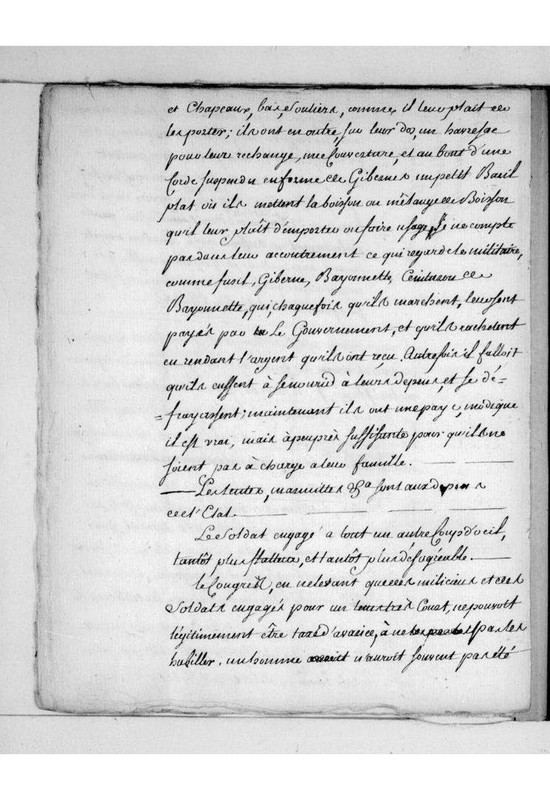 et Chapeaux, bas, souliers, comme il leur plait de
les porter; ils ont en outre, sur leur dos, un havresac
pour leur rechange, une Couverture et au bout d'une
Corde suspendu en forme de Giberne un petit Baril
plat où ils mettent la boisson ou mélange de Boisson
qu'il leur plait d'emporter ou faire usage. Je ne compte
pas dans leur accoutrement ce qui regarde le militaire,
comme fusil, Giberne, Bayonnette, Ceinturon de
Bayonnette, qui, chaque fois qu'ils marchent, leur sont
payés par Le Gouvernement, et qu'ils rachetent
en rendant l'argent qu'ils ont reçu. Autrefois il falloit
qu'ils eussent à se nourir à leurs depens, et se dé=
=frayassent; maintenant ils ont une paye, modique
il est vrai, mais àpeuprès suffisante pour qu'ils ne
soient pas à charge a leur famille.
— Les tentes, marmittes &ca sont aux depens
de l'Etat.
Le Soldat engagé a tout un autre Coup d'oeil,
tantôt plus flatteur, et tantôt plus desagréable.
le Congrès, en ne levant que des miliciens et des
Soldats engagés pour un tems très Court, ne pouvoit
légitimement être taxé d'avarice, à ne pas les
habiller. un homme n'auroit souvent pas été